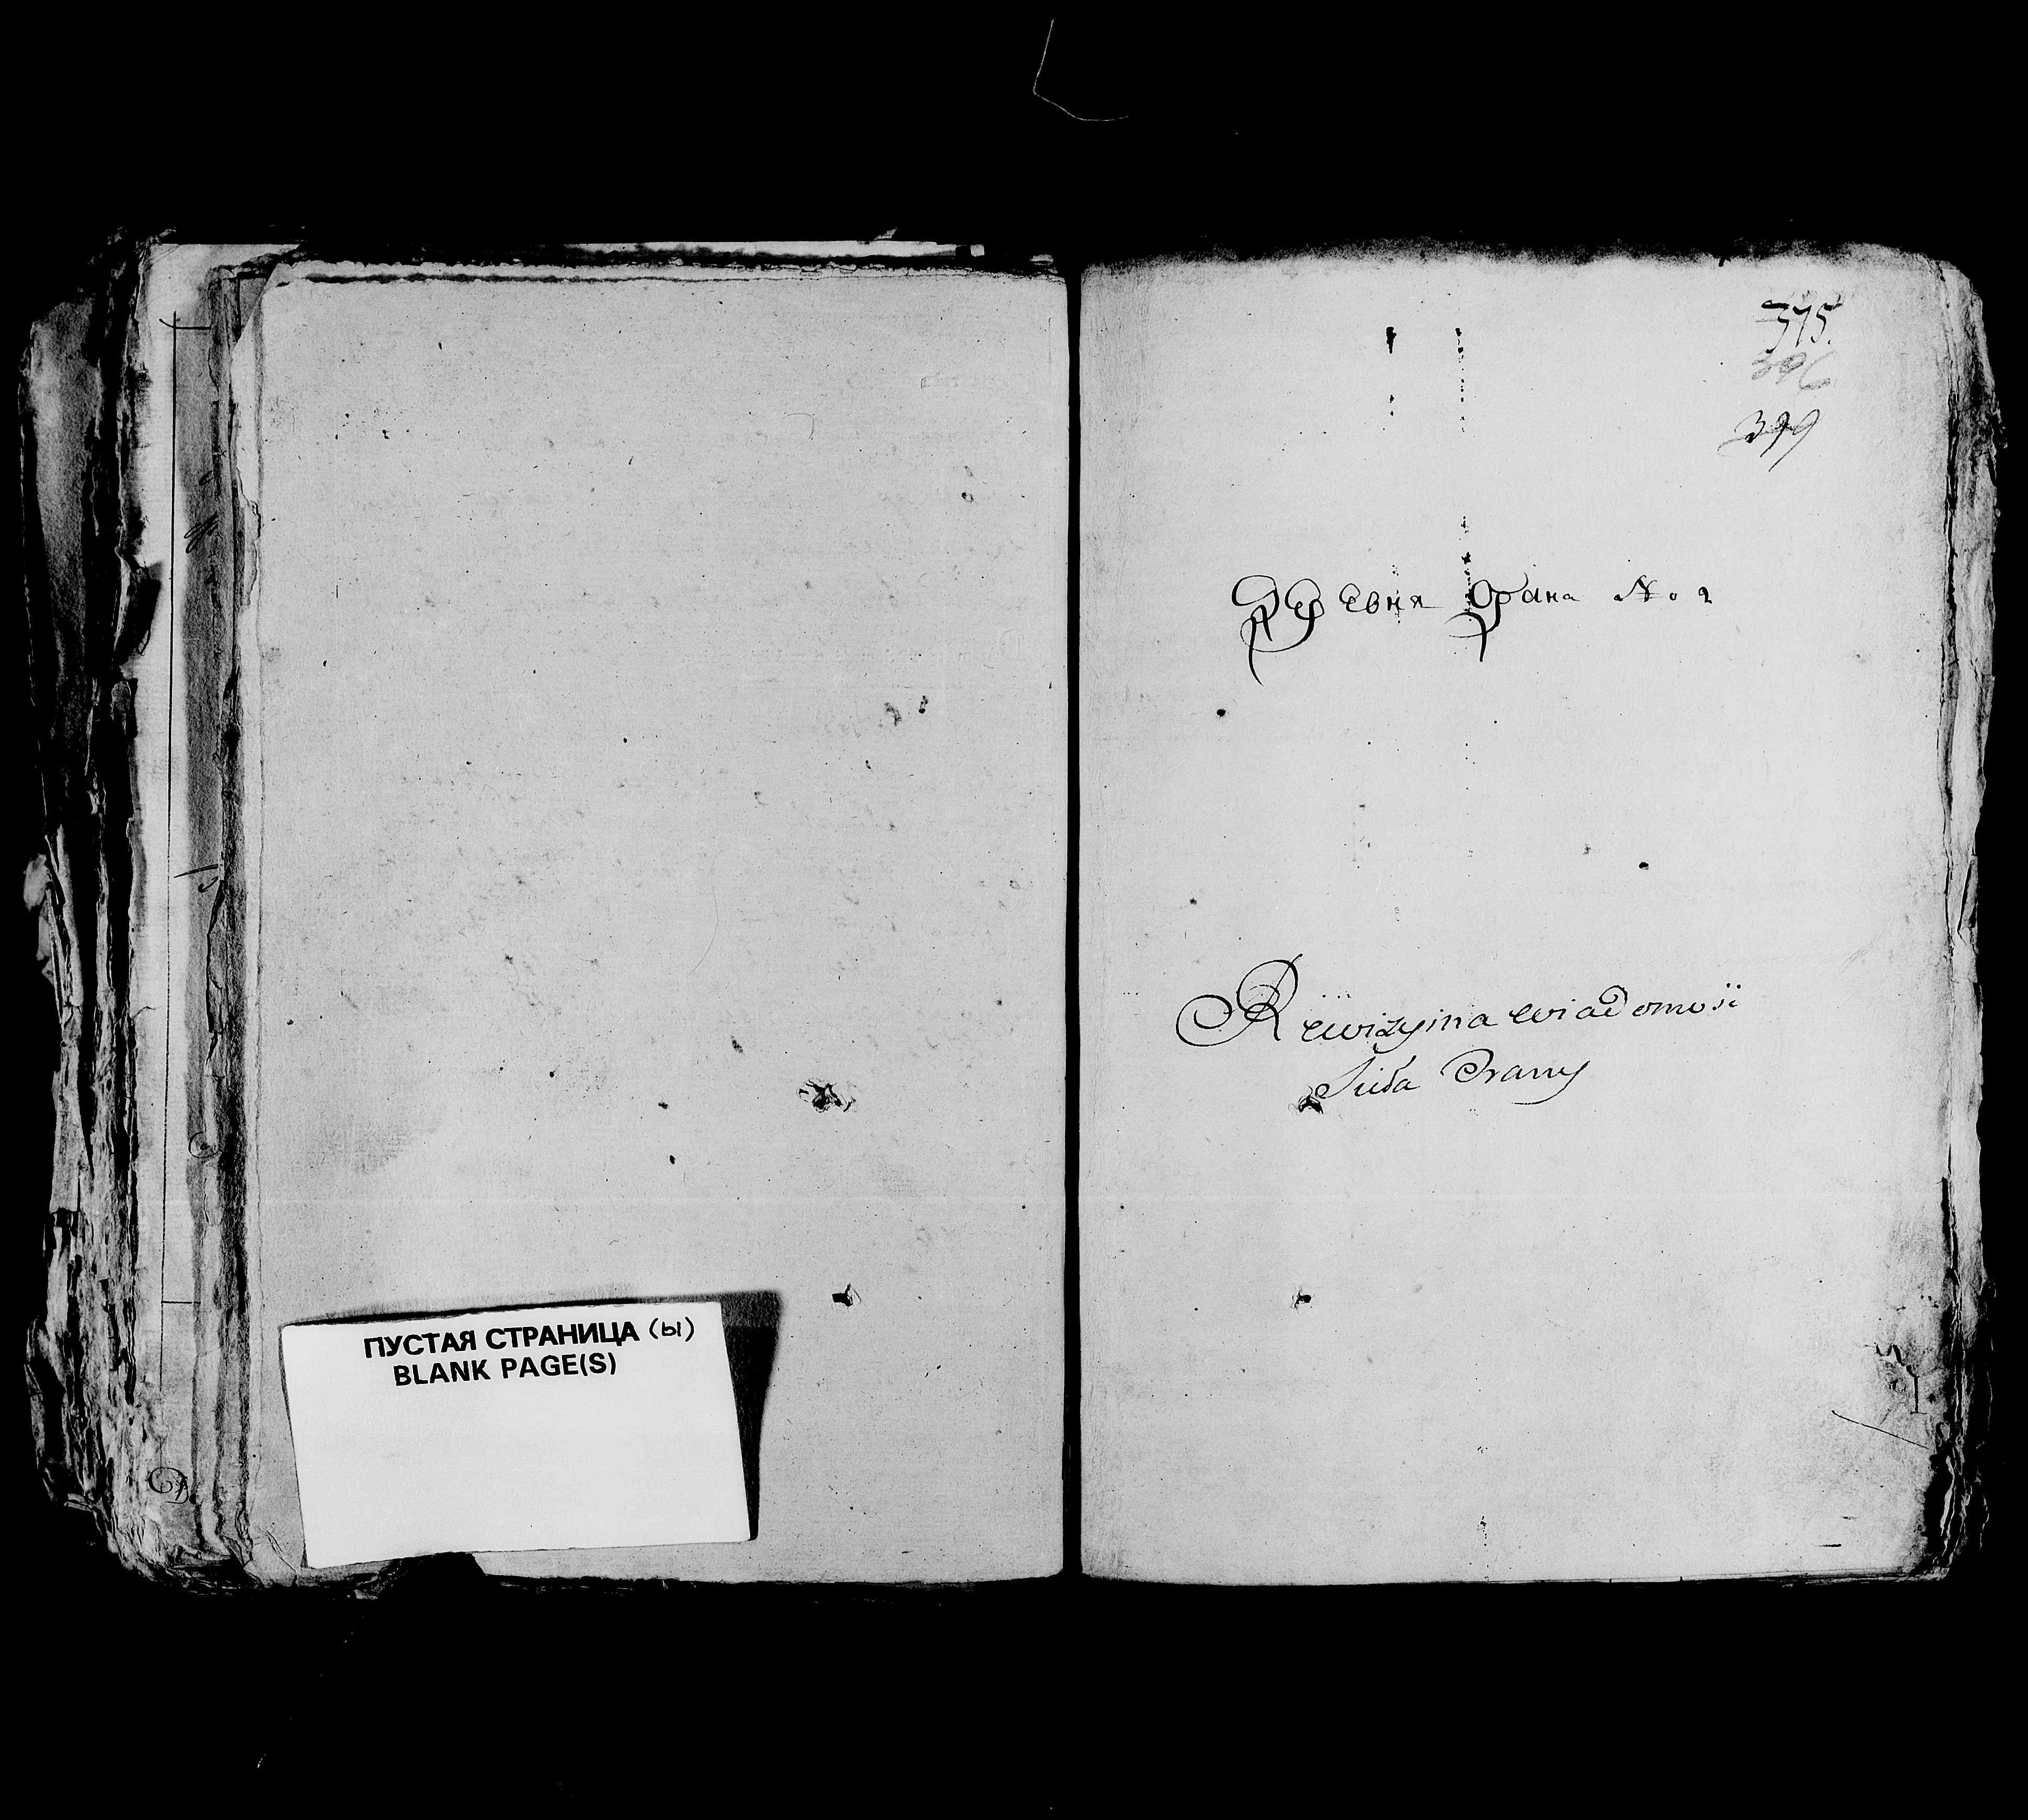 ПУСТАЯ СТРАНИЦА (ы)
BLANK PAGE(S)
375.
396
399
Деревня Орана No 2
Rewizyina wiadomość
Sioła Orany